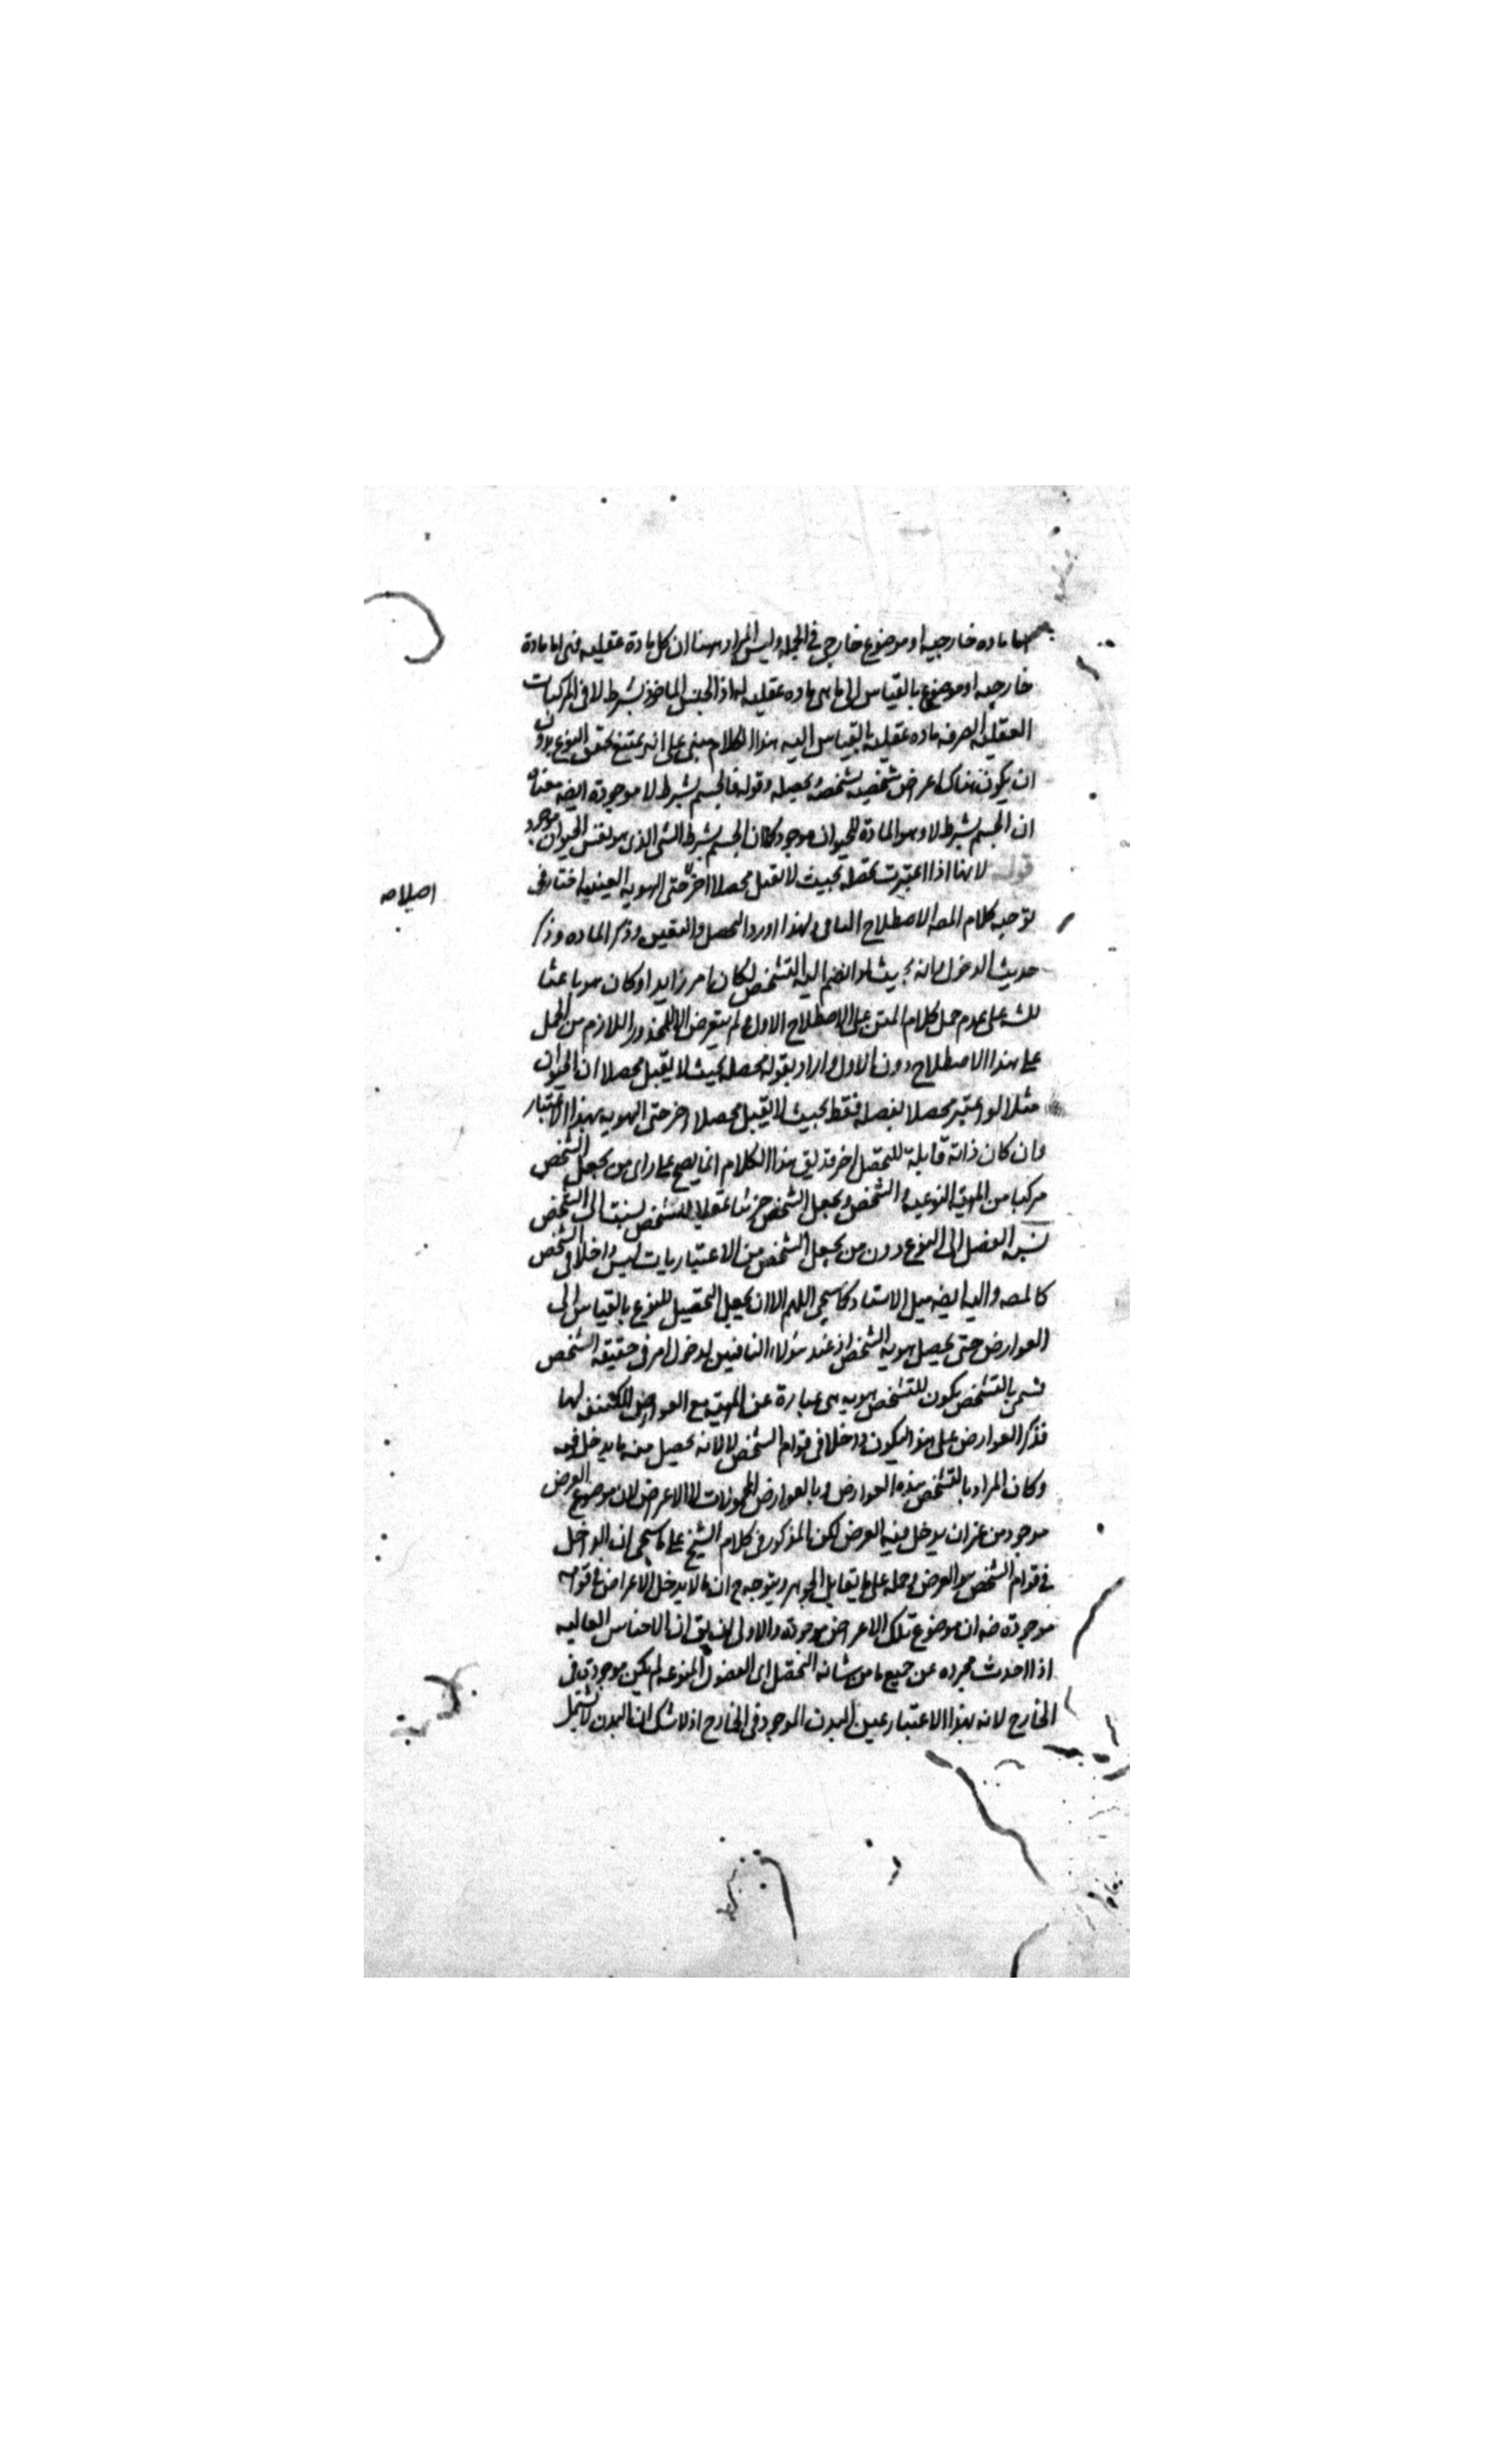 اما ماده خارجيه او موضوع خارجى فى الجمله وليس المراد ههنا ان كل مادة عقليه فهى اما مادة
خارجيه او موضوع بالقياس الى ما هى ماده عقليه له اذ الجنس الماخوذ بشرط لا فى المركبات
العقليه الصرفه ماده عقليه بالقياس اليه هذا الكلام مبنى على انه يمتنع تحقق النوع بدون
ان يكون هناك اعراض شخصيه تشخصه تحصله وقوله فالجسم بشرط لا موجودة ايضه معناه
ان الجسم بشرط لا وهو المادة للحيوان موجود كما ان الجسم بشرط الشى الذى هو نفس الحيوان موجود
قوله لانها اذا اعتبرت محصله بحيث لا تقبل محصلا اخر حتى الهويه العينيه اختار فى
توجيه كلام المصه الاصطلاح الثانى ولهذا اورد التحصل والتعين وذكر الماده وذكر
حديث الدخول بانه بحيث لو انضم اليه التشخص لكان امر زايد او كان هو باعثا
لك على عدم حمل كلام المتن على الاصطلاح الاول ولم يتعرض الا للمحذور اللازم من الحمل
على هذا الاصطلاح دون الاول واراد بقوله محصله بحيث لا يقبل محصلا ان الحيوان
مثلا لو اعتبر محصلا بفصله فقط بحيث لا يقبل محصلا اخر حتى الهويه بهذا الاعتبار
وان كان ذاته قابلة للتحصل اخر قد يق هذا الكلام انما يصح على راى من يجعل الشخص
مركبا من المهيه النوعيه والتشخص ويجعل التشخص جزئا عقليا للشخص نسبته الى الشخص
نسبه الفصل الى النوع دون من يجعل التشخص من الاعتباريات ليس داخلا فى الشخص
كالمصه واليه ايضه ميل الاستاد كما سيجى اللهم الا ان يجعل التحصيل للنوع بالقياس الى
العوارض حتى يحصل هويه الشخص اذ عند هؤلاء النافين لدخول امر فى حقيقه الشخص
يسمى بالتشخص يكون للشخص هويه هى عبارة عن المهيه مع العوارض المكتنفه لها
فذكر العوارض على هذا ليكون داخلا فى قوام الشخص لا لانه يحصل منه ما يدخل فيه
وكان المراد بالتشخص هذه العوارض وبالعوارض المحمولات لا الاعراض لان موضوع العرض
موجود من غير ان يدخل فيه العرض لكن المذكور فى كلام الشيخ على ما سيجى ان الداخل
فى قوام الشخص هو العرض وحمله على ما يقابل الجوهر ويتوجه ح ان ما لا يدخل الاعراض فى قوامه
موجودة ضه ان موضوع تلك الاعراض موجوده والاولى ان يق ان الاجناس العاليه
اذا اخذت مجرده عن جميع ما من شانه التحصل اى الفصول المنوعه لم يكن موجودة فى
الخارج لانه بهذا الاعتبار عين البدن الموجود فى الخارج اذ لا شك ان البدن لا يشتمل